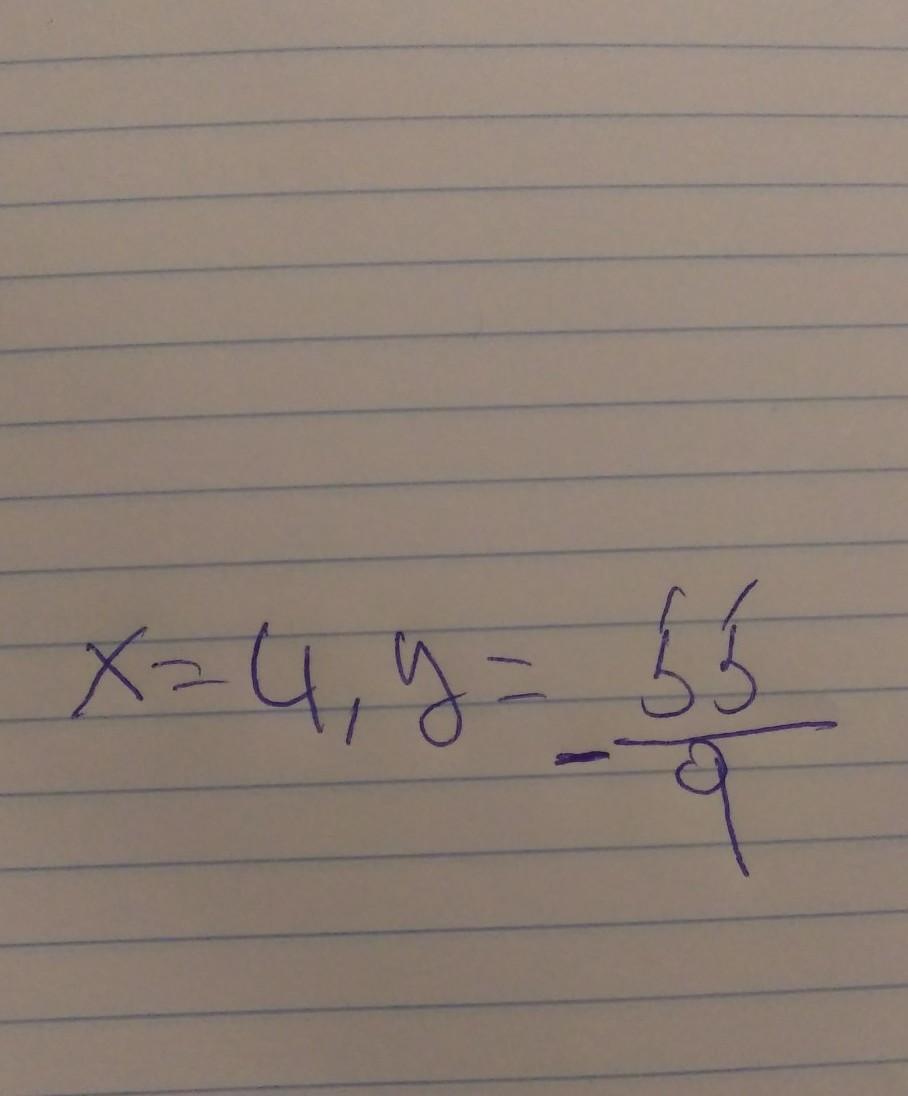 x=4, y= -55/9